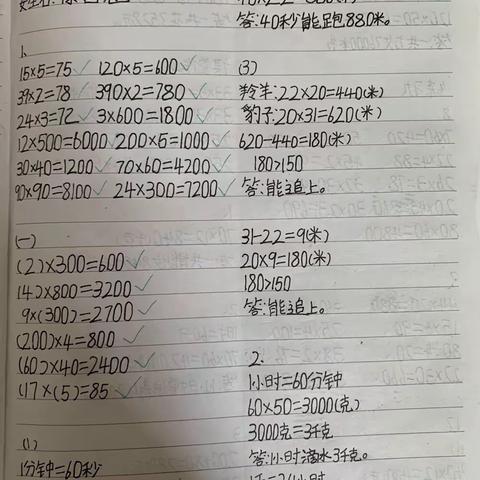 1.
15×5=75 120×5=600
39×2=78 390×2=780
24×3=72 3×600=1800
12×500=6000 200×5=1000
30×40=1200 70×60=4200
90×90=8100 24×300=7200
(一)
(2)×300=600
(4)×800=3200
9×(300)=2700
(200)×4=800
(60)×40=2400
(17×(5)=85
(1)
1分钟=60秒
答:40秒能跑880米。
(3)
羚羊:22×20=440(米)
豹子:20×31=620(米)
620-440=180(米)
180>150
答:能追上。
31-22=9(米)
20×9=180(米)
180>150
答:能追上。
2.
1小时=60分钟
60×50=3000(克)
3000克=3千克
答:1小时滴水3千克。